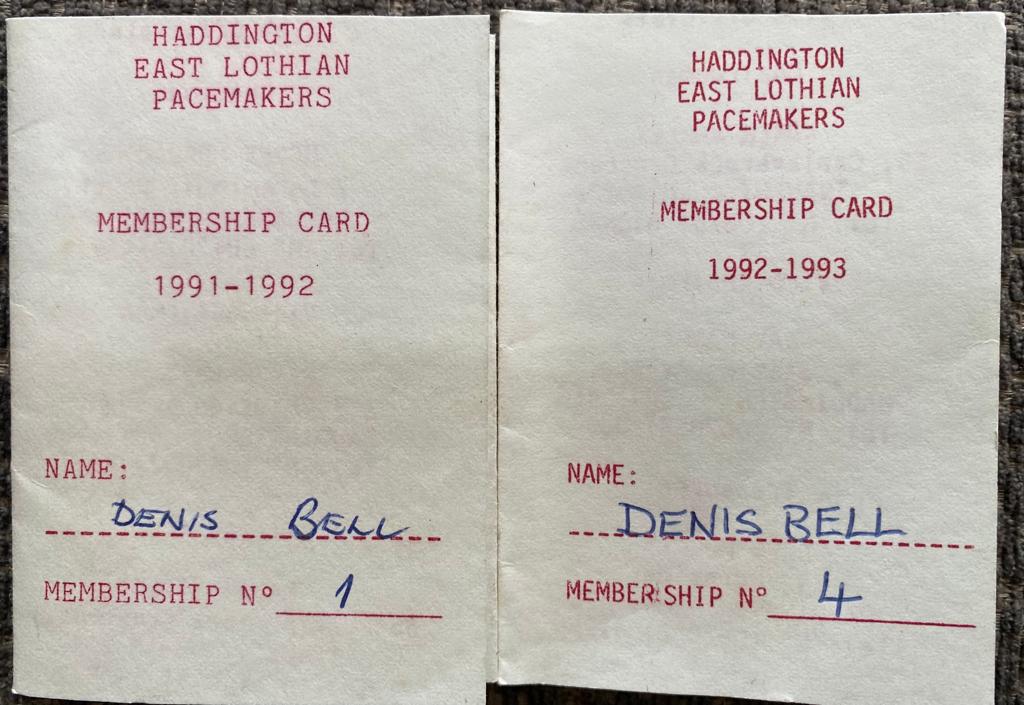 HADDINGTON
EAST LOTHIAN
PACEMAKERS
MEMBERSHIP CARD
1991-1992
NAME:
DENIS BELL
MEMBERSHIP Nº 1
HADDINGTON
EAST LOTHIAN
PACEMAKERS
MEMBERSHIP CARD
1992-1993
NAME:
DENIS BELL
MEMBERSHIP Nº 4